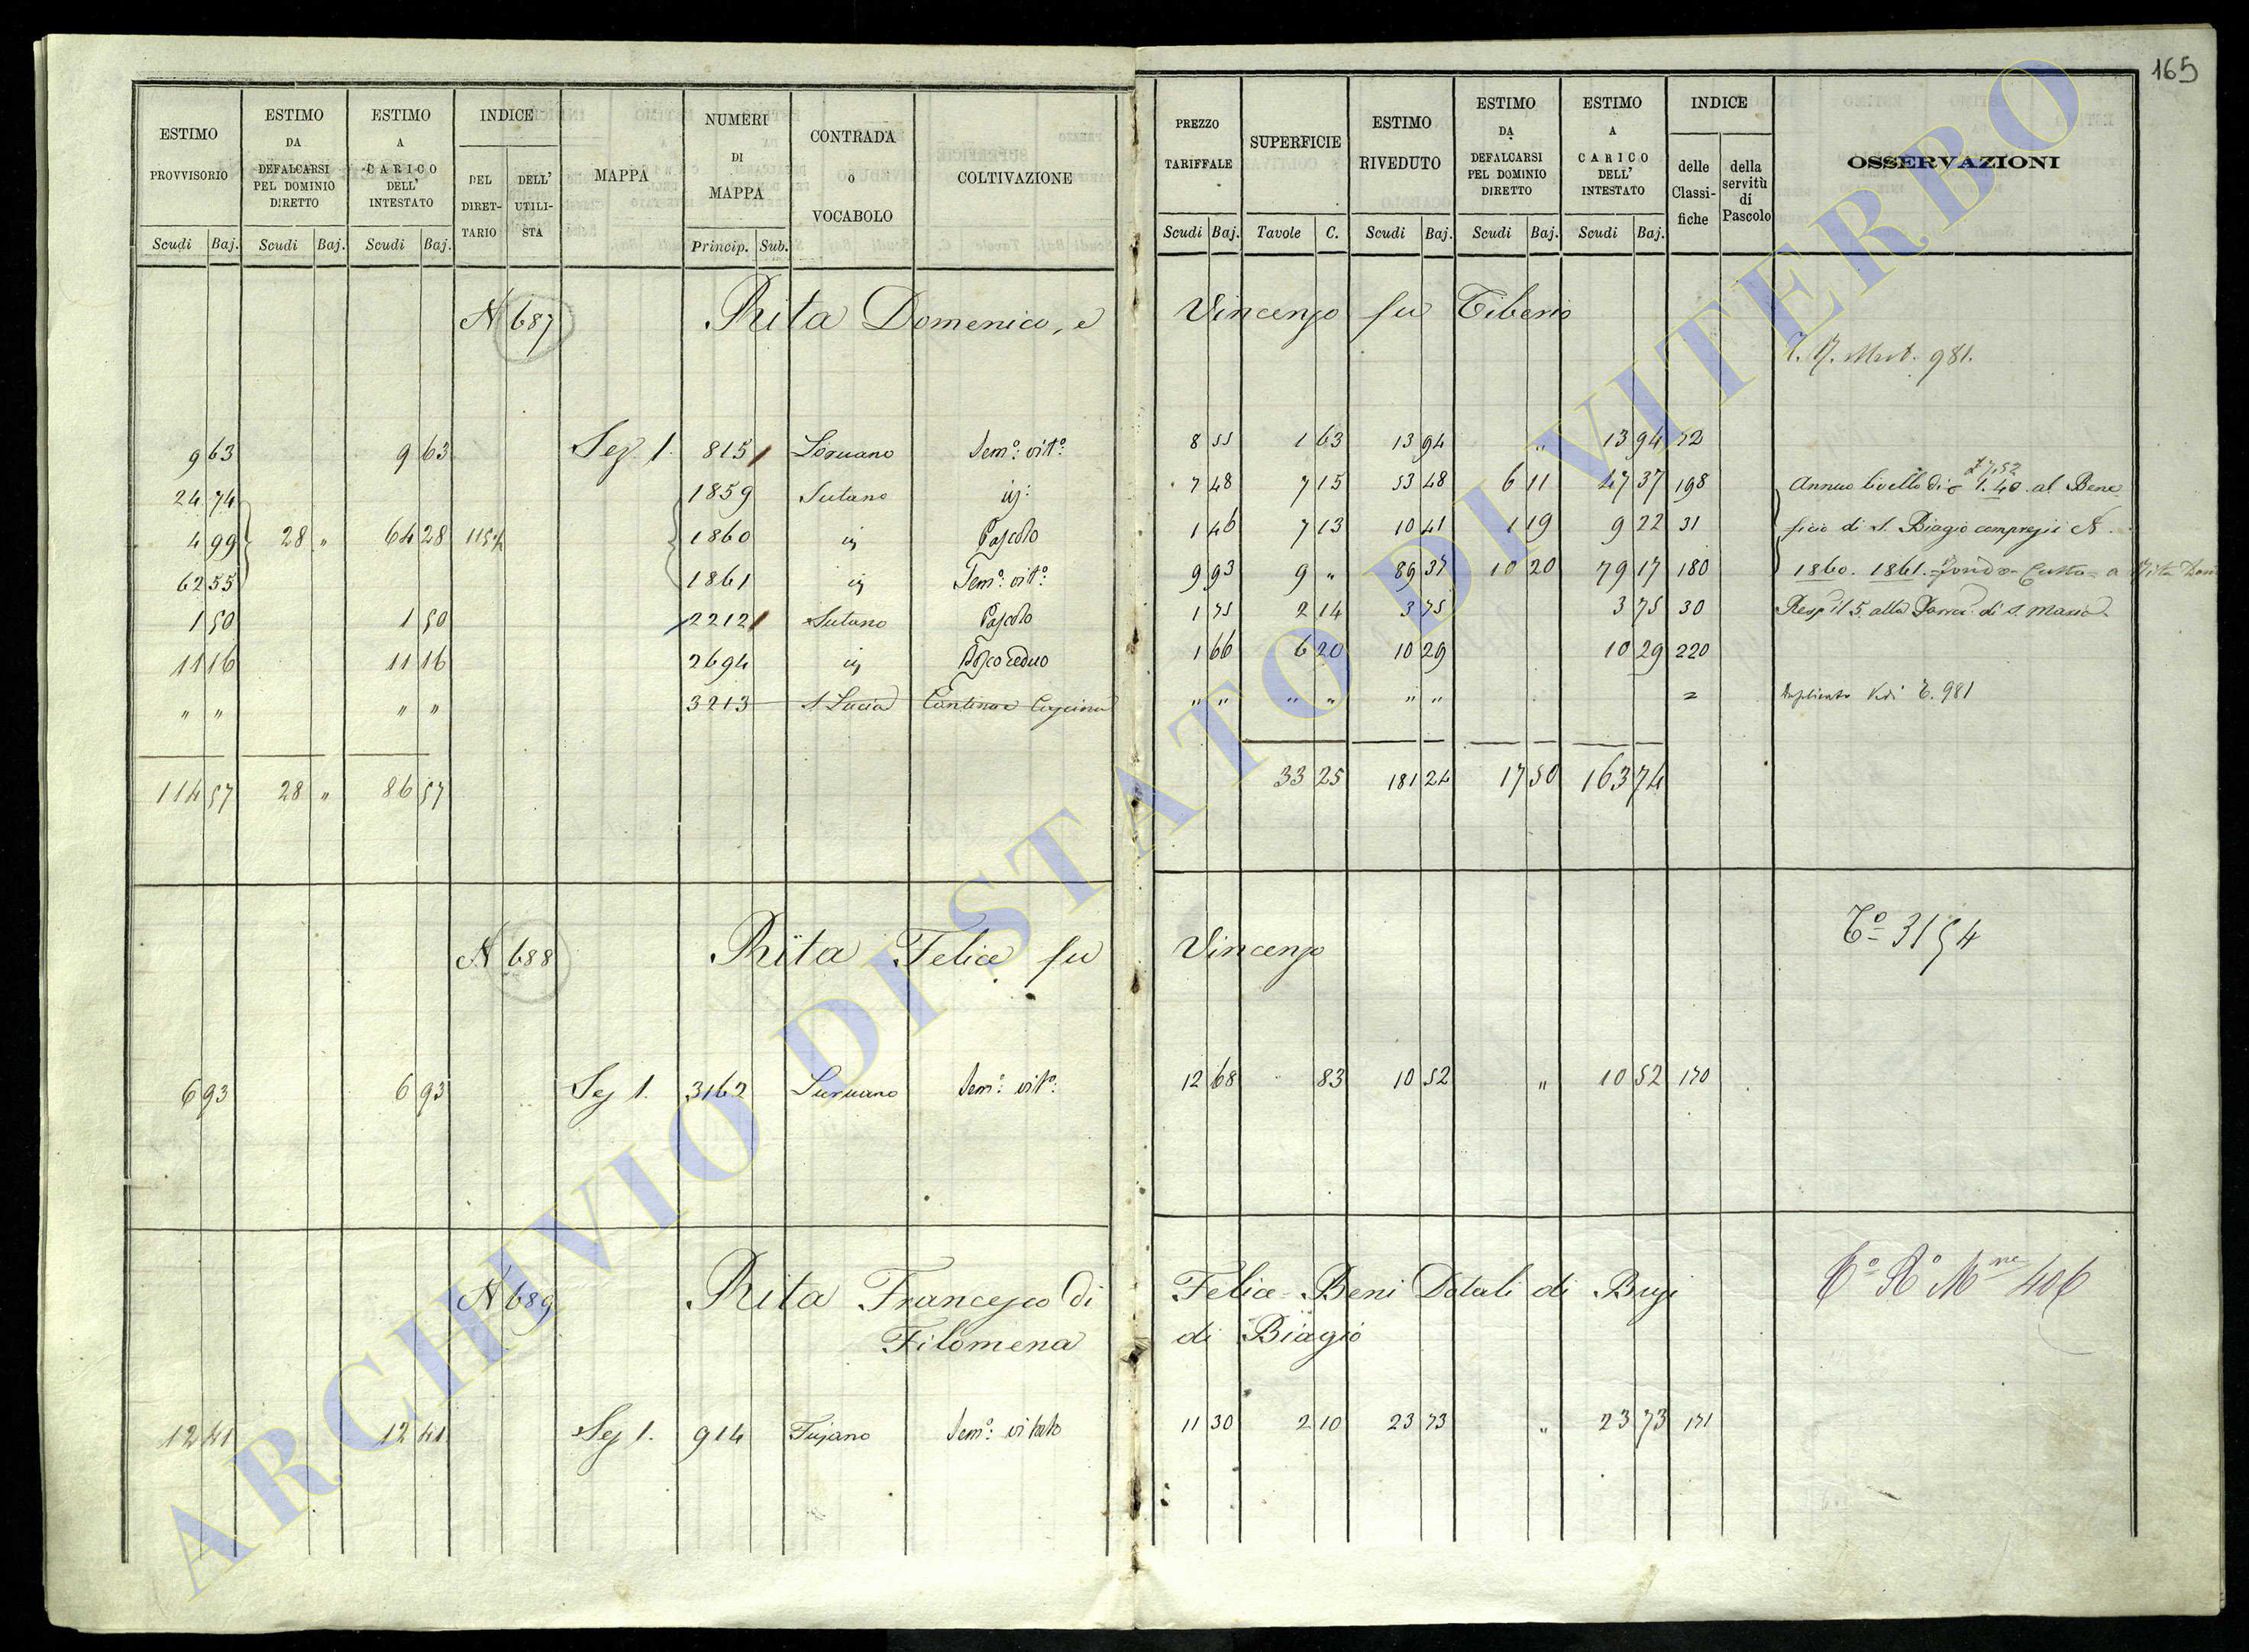 165
ESTIMO PROVVISORIO | ESTIMO DA DEFALCARSI PEL DOMINIO DIRETTO | ESTIMO A CARICO DELL' INTESTATO | INDICE | MAPPA | NUMERI DI MAPPA | CONTRADA o VOCABOLO | COLTIVAZIONE | PREZZO TARIFFALE | SUPERFICIE | ESTIMO RIVEDUTO | ESTIMO DA DEFALCARSI PEL DOMINIO DIRETTO | ESTIMO A CARICO DELL' INTESTATO | INDICE | OSSERVAZIONI
DEL DIRETTARIO | DELL' UTILISTA | delle Classifiche | della servitù di Pascolo
Scudi | Baj. | Scudi | Baj. | Scudi | Baj. | Princip. | Sub. | Scudi | Baj. | Tavole | C. | Scudi | Baj. | Scudi | Baj. | Scudi | Baj.
N 687 Rita Domenico, e Vincenzo fu Tiberio
981.
9 63 | 9 63 | Sez. 1. | 815 | Soruano | Semo: vito: | 8 55 | 1 63 | 13 94 | " | 13 94 | 72
24 74 | 1859 | Sutano | 7 48 | 7 15 | 53 48 | 6 11 | 47 37 | 198 | Annuo livello di 1.40 al Bene
4 99 | 28 " | 64 28 | 1860 | Pascolo | 1 46 | 7 13 | 10 41 | 1 19 | 9 22 | 31 | ficio di S. Biagio compresi i N.
62 55 | 1861 | Semo: vito: | 9 93 | 9 " | 89 37 | 10 20 | 79 17 | 180 | 1860. 1861.
1 50 | 1 50 | 2212 | Sutano | Pascolo | 1 75 | 2 14 | 3 75 | 3 75 | 30 | alla di S. Maria
11 16 | 11 16 | 2694 | Bosco ceduo | 1 66 | 6 20 | 10 29 | 10 29 | 220
" " | " " | 3213 | S. Lucia | " " | " " | " " | Duplicato Vedi T. 981
114 57 | 28 " | 86 57 | 33 25 | 181 24 | 17 50 | 163 74
N 688 Rita Felice fu Vincenzo
To 3154
6 93 | 6 93 | Sez 1. | 3162 | Suruano | Semo: vito: | 12 68 | 83 | 10 52 | " | 10 52 | 170
N 689 Rita Francesco di Felice = Beni Dotali di
Filomena di Biagio
406
12 41 | 12 41 | Sez 1. | 914 | Fujano | Semo: vitato | 11 30 | 2 10 | 23 73 | " | 23 73 | 171
ARCHIVIO DI STATO DI VITERBO